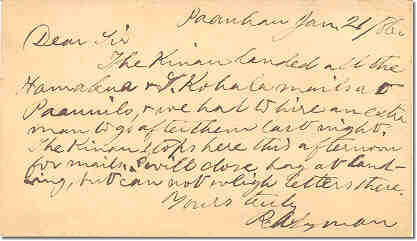 Paauhau Jan. 21/86.
Dear Sir
The Kinau landed all the
Hamakua & S. Kohala mails at
Paauilo, & we had to hire an extra
man to go after them last night.
The Kinau stops here this afternoon
for mails. I will close bag at land-
ing, but can not weigh letters there.
Yours truly
R A Lyman